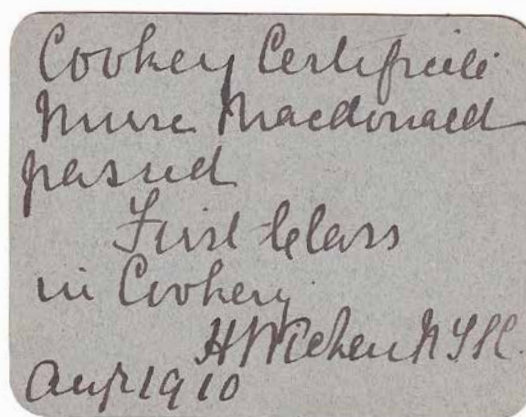 Cookery Certificate
Nurse Macdonald
passed
First Class
in Cookery.
H
1910